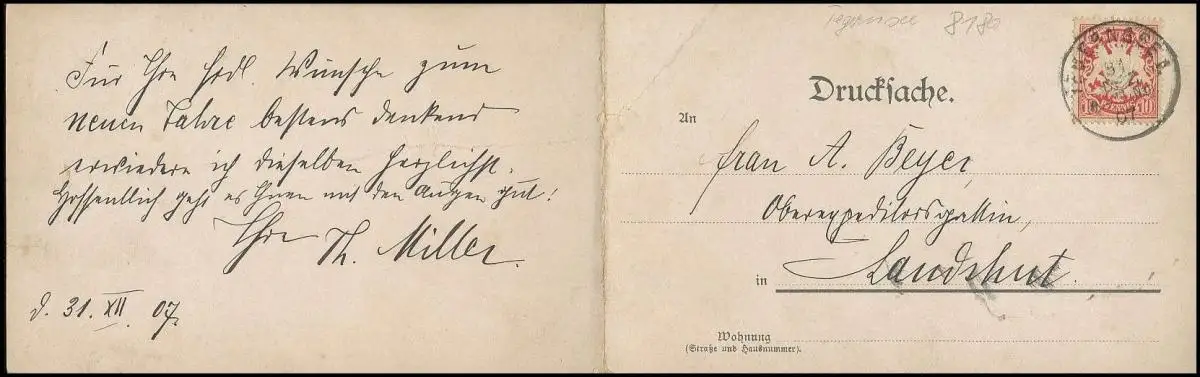 Für Ihre frdl. Wünsche zum
neuen Jahre bestens dankend
erwiedere ich dieselben herzlichst.
Hoffentlich geht es Ihnen mit den Augen gut!
Ihre Th. Miller.
d. 31. XII. 07.
Tegernsee 8180
Drucksache.
An
Frau A. Beyer,
Oberexpeditorsgattin,
in Landshut.
Wohnung
(Straße und Hausnummer).
PFENNIG 10
07